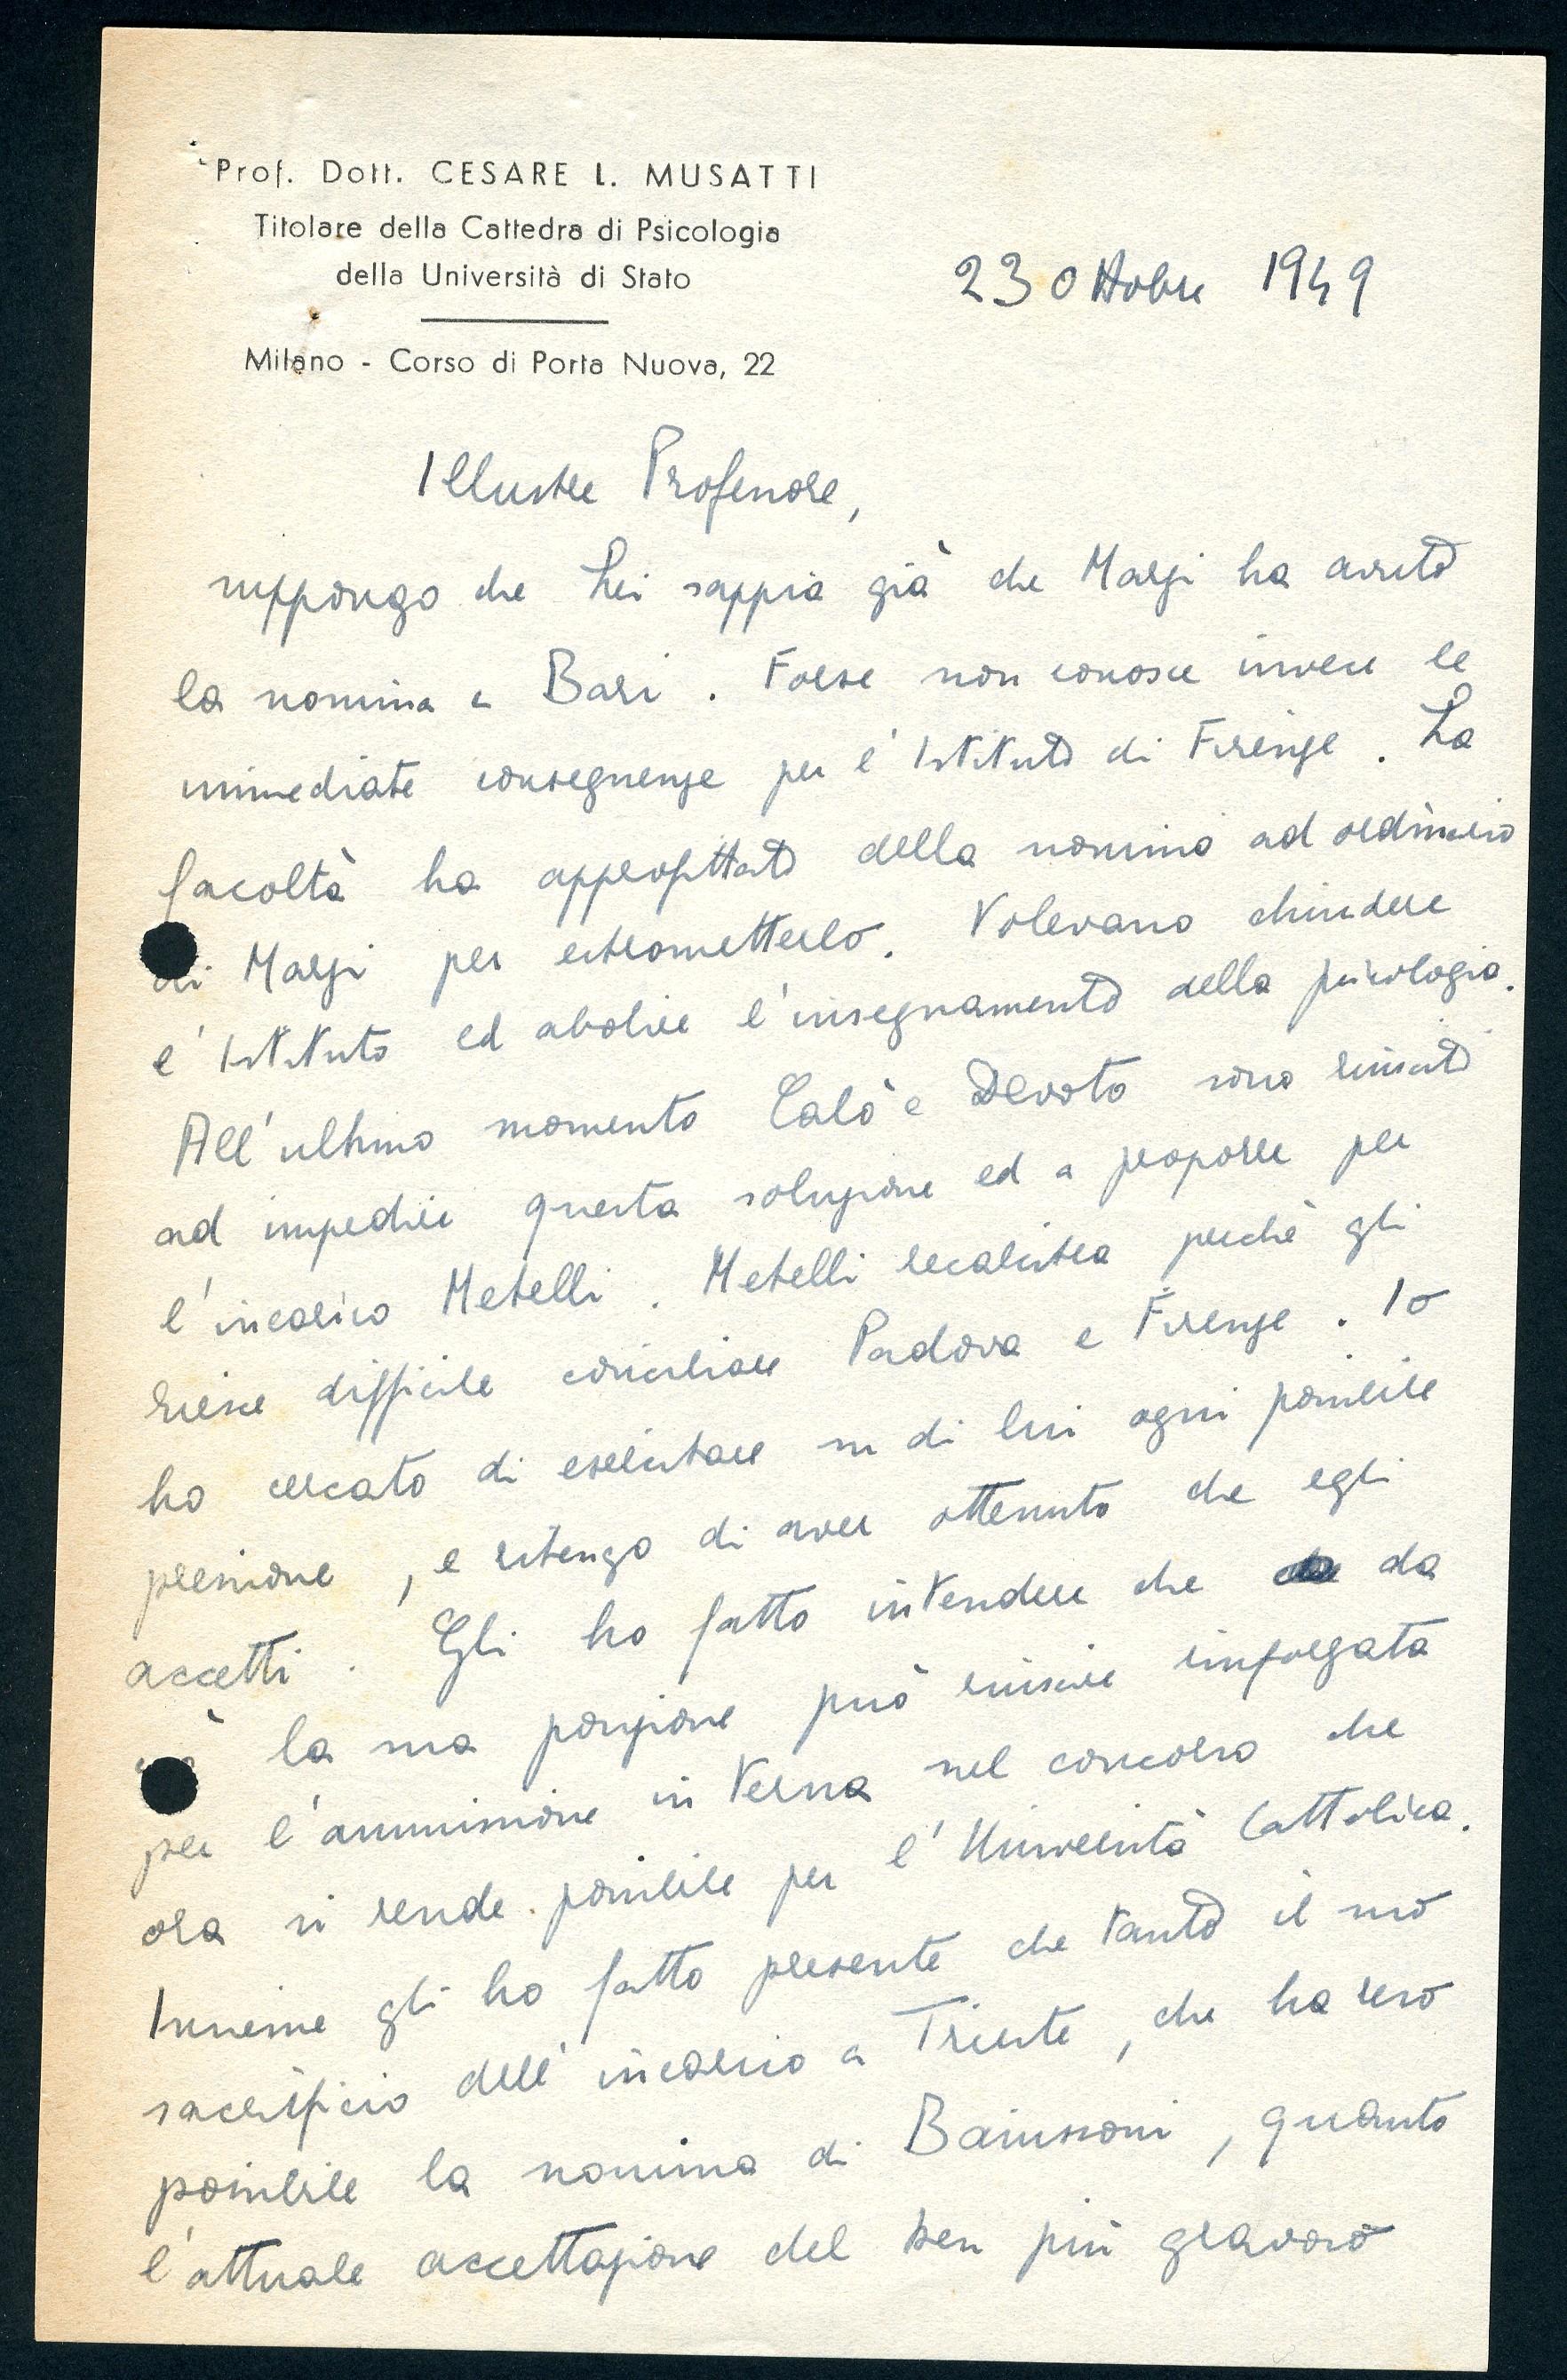 Prof. Dott. CESARE L. MUSATTI
Titolare della Cattedra di Psicologia
della Università di Stato
Milano - Corso di Porta Nuova, 22
23 ottobre 1949
Illustre Professore,
suppongo che Lei sappia già che Marzi ha avuto
la nomina a Bari. Forse non conosce invece le
immediate conseguenze per l'Istituto di Firenze. La
facoltà ha approfittato della nomina ad ordinario
di Marzi per estrometterlo. Volevano chiudere
l'Istituto ed abolire l'insegnamento della psicologia.
All'ultimo momento Calò e Devoto sono riusciti
ad impedire questa soluzione ed a proporre per
l'incarico Metelli. Metelli recalcitra perchè gli
riesce difficile conciliare Padova e Firenze. Io
ho cercato di esercitare su di lui ogni possibile
pressione, e ritengo di aver ottenuto che egli
accetti. Gli ho fatto intendere che da
ciò la sua posizione può riuscire rinforzata
per l'ammissione in terna nel concorso che
ora si rende possibile per l'Università Cattolica.
Insieme gli ho fatto presente che tanto il suo
sacrificio dell'incarico a Trieste, che ha reso
possibile la nomina di, quanto
l'attuale accettazione del ben più gravoso